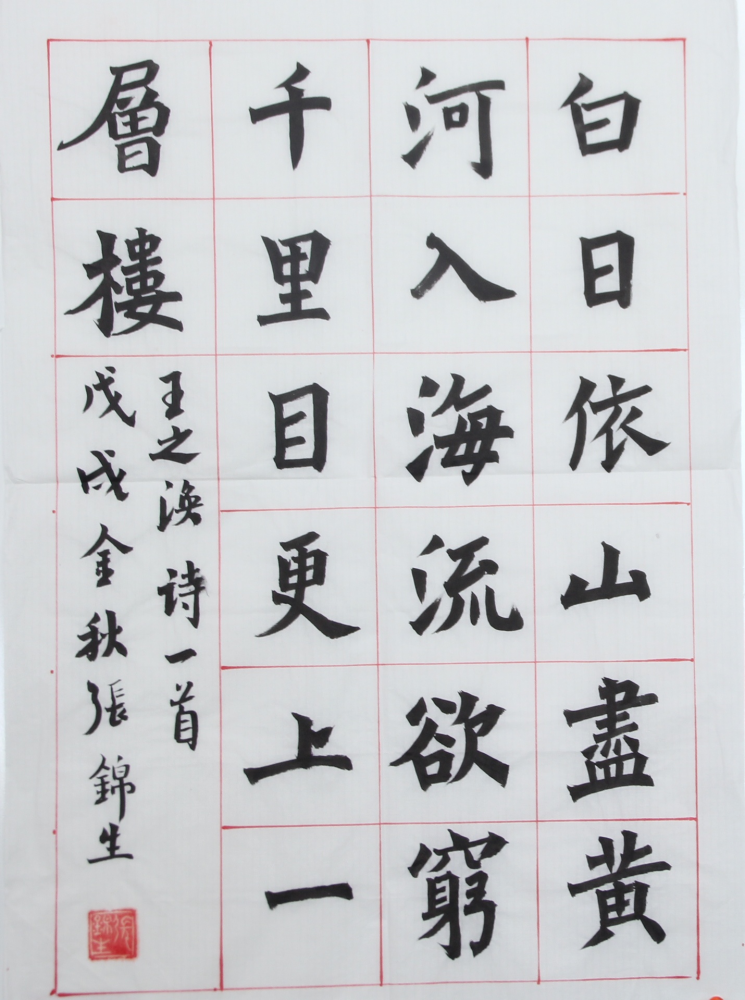 白日依山盡黄
河入海流欲窮
千里目更上一
層樓
王之涣诗一首
戊戌金秋張錦生
張錦生